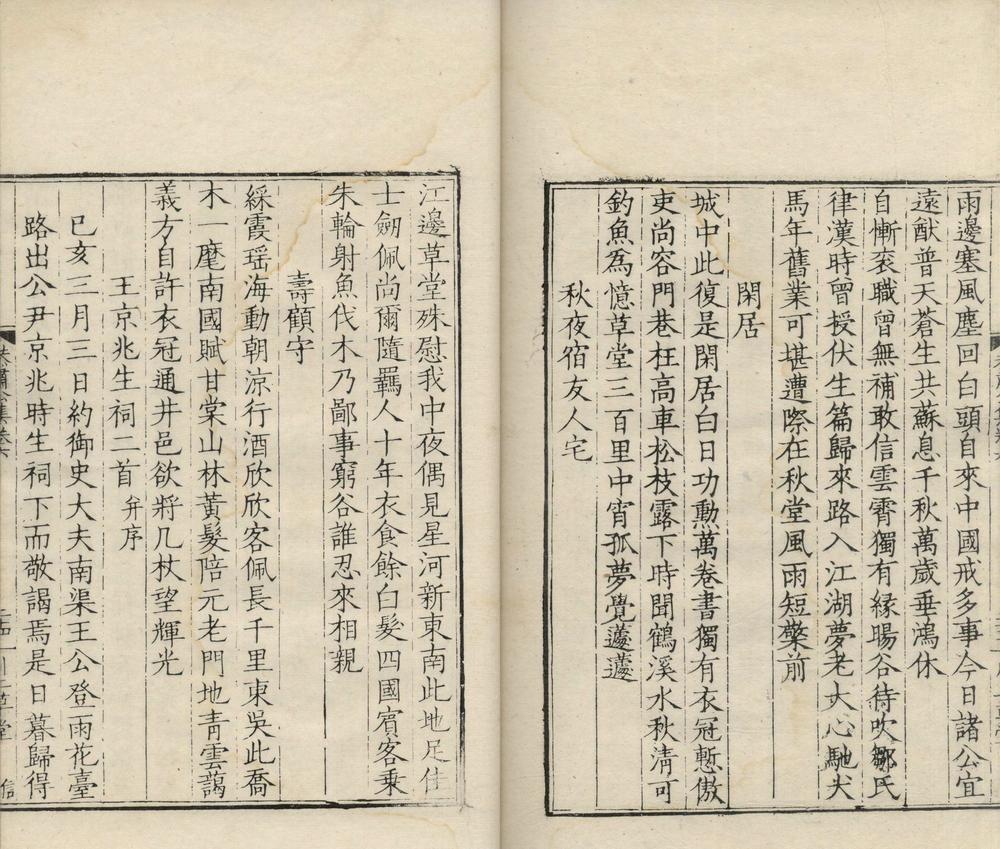 雨邊塞風塵回白頭自來中國戒多事今日諸公宜
遠猷普天蒼生共蘇息千秋萬歲垂鴻休
自慚衮職曾無補敢信雲霄獨有緣暘谷待吹鄒氏
律漢時曾授伏生篇歸來路入江湖夢老大心馳犬
馬年舊業可堪遭際在秋堂風雨短檠前
閑居
城中此復是閑居白日功勲萬卷書獨有衣冠慙傲
吏尚容門巷枉高車松枝露下時聞鶴溪水秋清可
釣魚為憶草堂三百里中宵孤夢覺蘧蘧
秋夜宿友人宅
江邊草堂殊慰我中夜偶見星河新東南此地足佳
士劒佩尚爾隨羈人十年衣食餘白髮四國賓客乗
朱輪射魚伐木乃鄙事窮谷誰忍來相親
壽顧守
綵霞瑶海動朝涼行酒欣欣客佩長千里東吳此喬
木一麾南國賦甘棠山林黃髮陪元老門地青雲藹
義方自許衣冠通井邑欲將几杖望輝光
王京兆生祠二首 并序
已亥三月三日約御史大夫南渠王公登雨花臺
路出公尹京兆時生祠下而敬謁焉是日暮歸得